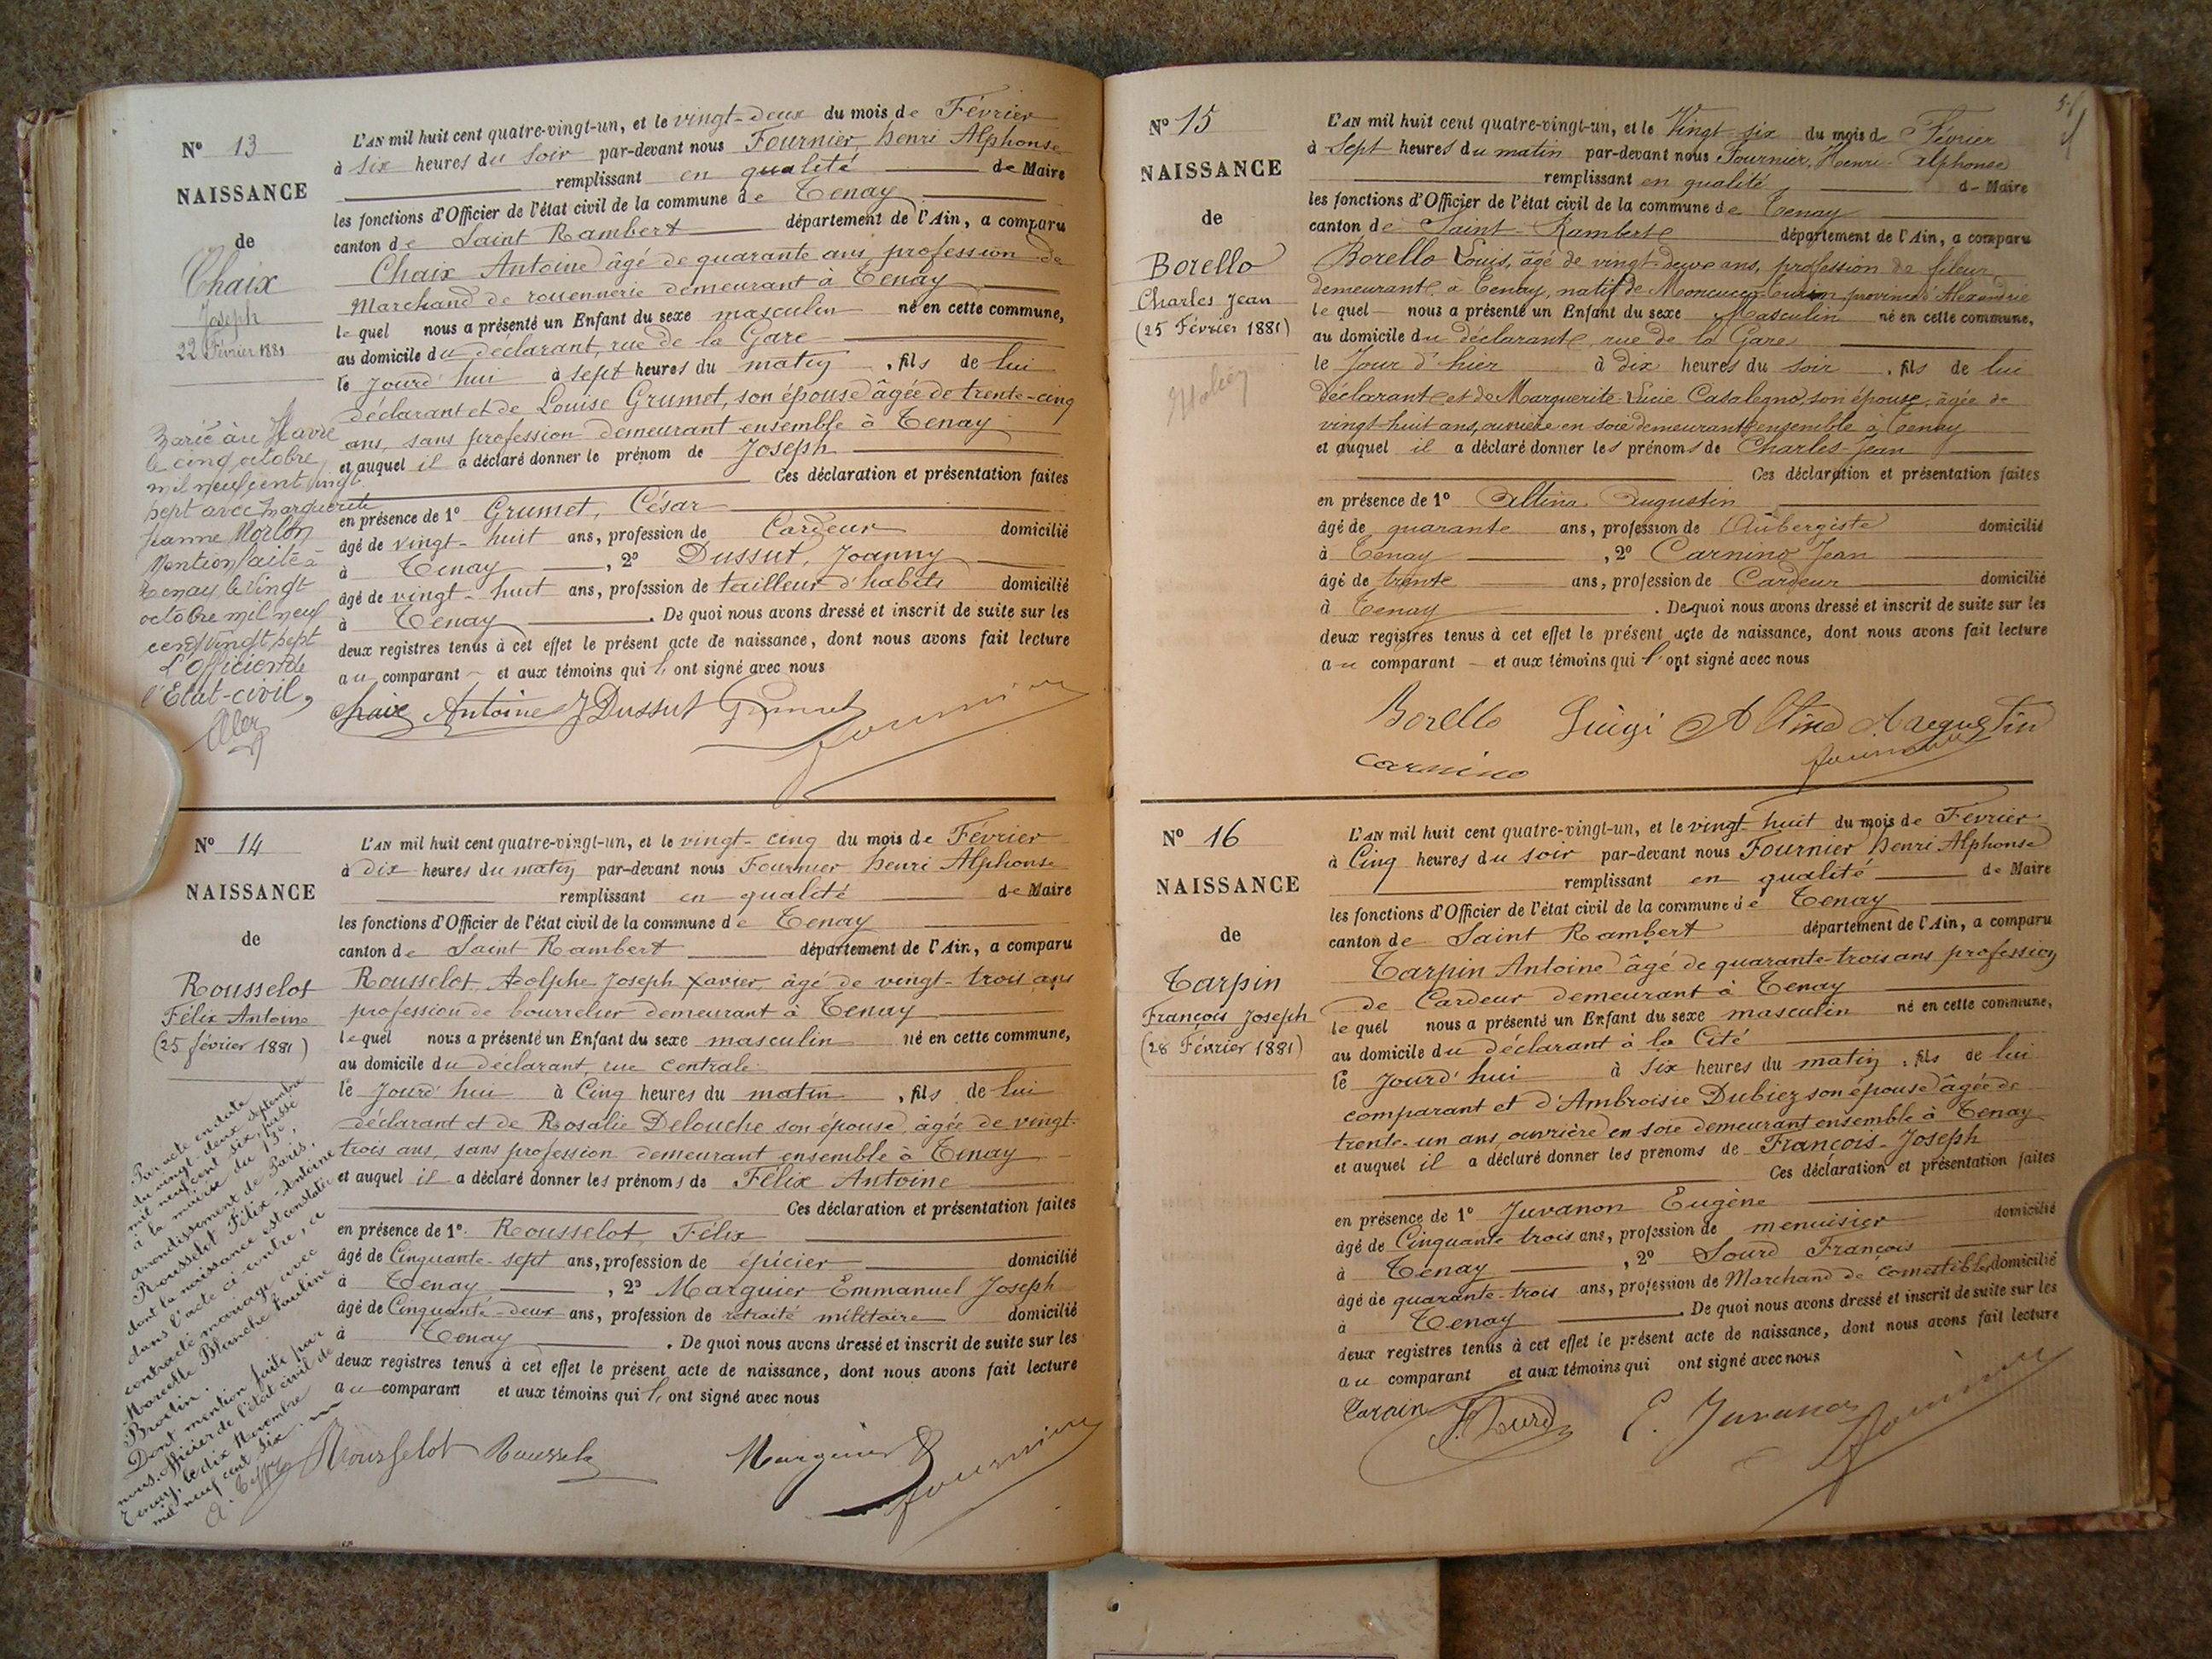 N° 13
NAISSANCE
de
Chaix
Joseph
22 Février 1881
Marié au Havre
le cinq octobre
mil neuf cent vingt
sept avec Marguerite
Jeanne Morlon
Mention faite à
Tenay le vingt
octobre mil neuf
cent vingt sept
L'Officier de
l'Etat-civil,
L'AN mil huit cent quatre-vingt-un, et le vingt-deux du mois de Février
à six heures du soir par-devant nous Fournier, Henri Alphonse
remplissant en qualité de Maire
les fonctions d'Officier de l'état civil de la commune de Tenay
canton de Saint Rambert département de l'Ain, a comparu
Chaix Antoine âgé de quarante ans profession de
Marchand de rouennerie demeurant à Tenay
lequel nous a présenté un Enfant du sexe masculin né en cette commune,
au domicile du déclarant, rue de la Gare
le Jourd'hui à sept heures du matin, fils de lui
déclarant et de Louise Grumet, son épouse âgée de trente-cinq
ans, sans profession demeurant ensemble à Tenay
et auquel il a déclaré donner le prénom de Joseph
Ces déclaration et présentation faites
en présence de 1° Grumet, César
âgé de vingt-huit ans, profession de Cardeur domicilié
à Tenay, 2° Dussut, Joanny
âgé de vingt-huit ans, profession de tailleur d'habits domicilié
à Tenay. De quoi nous avons dressé et inscrit de suite sur les
deux registres tenus à cet effet le présent acte de naissance, dont nous avons fait lecture
au comparant et aux témoins qui l'ont signé avec nous
Chaix Antoine J Dussut Grumet
Fournier
N° 14
NAISSANCE
de
Rousselot
Félix Antoine
(25 février 1881)
Par acte en date
du vingt-deux septembre
mil neuf cent six, passé
à la mairie du 13e
arrondissement de Paris,
Rousselot Félix-Antoine
dont la naissance est constatée
dans l'acte ci-contre, a
contracté mariage avec
Marcelle Blanche Pauline
Dont mention faite par
nous, officier de l'état civil de
Tenay, le dix Novembre
mil neuf cent six.
L'AN mil huit cent quatre-vingt-un, et le vingt-cinq du mois de Février
à dix heures du matin par-devant nous Fournier Henri Alphonse
remplissant en qualité de Maire
les fonctions d'Officier de l'état civil de la commune de Tenay
canton de Saint Rambert département de l'Ain, a comparu
Rousselot Adolphe Joseph Xavier, âgé de vingt-trois ans
profession de bourrelier demeurant à Tenay
lequel nous a présenté un Enfant du sexe masculin né en cette commune,
au domicile du déclarant, rue centrale
le Jourd'hui à Cinq heures du matin, fils de lui
déclarant et de Rosalie Delouche son épouse, âgée de vingt-
trois ans, sans profession demeurant ensemble à Tenay
et auquel il a déclaré donner les prénoms de Félix Antoine
Ces déclaration et présentation faites
en présence de 1° Rousselot, Félix
âgé de Cinquante-sept ans, profession de épicier domicilié
à Tenay, 2° Marguier Emmanuel Joseph
âgé de Cinquante-deux ans, profession de retraité militaire domicilié
à Tenay. De quoi nous avons dressé et inscrit de suite sur les
deux registres tenus à cet effet le présent acte de naissance, dont nous avons fait lecture
au comparant et aux témoins qui l'ont signé avec nous
Rousselot Marguier
Fournier
N° 15
NAISSANCE
de
Borello
Charles Jean
(25 Février 1881)
L'AN mil huit cent quatre-vingt-un, et le Vingt-six du mois de Février
à Sept heures du matin par-devant nous Fournier, Henri Alphonse
remplissant en qualité de Maire
les fonctions d'Officier de l'état civil de la commune de Tenay
canton de Saint-Rambert département de l'Ain, a comparu
Borello Louis, âgé de vingt-deux ans, profession de fileur
demeurant à Tenay, natif de province d'Alexandrie
lequel nous a présenté un Enfant du sexe Masculin né en cette commune,
au domicile du déclarant, rue de la Gare
le Jour d'hier à dix heures du soir, fils de lui
déclarant et de Marguerite Lucie Casalegno, son épouse, âgée de
vingt-huit ans, ouvrière en soie demeurant ensemble à Tenay
et auquel il a déclaré donner les prénoms de Charles-Jean
Ces déclaration et présentation faites
en présence de 1° Altina Augustin
âgé de quarante ans, profession de Aubergiste domicilié
à Tenay, 2° Carnino Jean
âgé de trente ans, profession de Cardeur domicilié
à Tenay. De quoi nous avons dressé et inscrit de suite sur les
deux registres tenus à cet effet le présent acte de naissance, dont nous avons fait lecture
au comparant et aux témoins qui l'ont signé avec nous
Borello Luigi Altina Augustin
Carnino Fournier
N° 16
NAISSANCE
de
Tarpin
François Joseph
(28 Février 1881)
L'AN mil huit cent quatre-vingt-un, et le vingt-huit du mois de Février
à Cinq heures du soir par-devant nous Fournier Henri Alphonse
remplissant en qualité de Maire
les fonctions d'Officier de l'état civil de la commune de Tenay
canton de Saint Rambert département de l'Ain, a comparu
Tarpin Antoine âgé de quarante-trois ans profession
de Cardeur demeurant à Tenay
lequel nous a présenté un Enfant du sexe masculin né en cette commune,
au domicile du déclarant à la Cité
le Jourd'hui à six heures du matin, fils de lui
comparant et d'Ambroisie Dubiez son épouse âgée de
trente-un ans, ouvrière en soie demeurant ensemble à Tenay
et auquel il a déclaré donner les prénoms de François-Joseph
Ces déclaration et présentation faites
en présence de 1° Juvanon Eugène
âgé de Cinquante trois ans, profession de menuisier domicilié
à Tenay, 2° Sourd François
âgé de quarante-trois ans, profession de Marchand de comestibles domicilié
à Tenay. De quoi nous avons dressé et inscrit de suite sur les
deux registres tenus à cet effet le présent acte de naissance, dont nous avons fait lecture
au comparant et aux témoins qui ont signé avec nous
Tarpin F. Sourd E. Juvanon
Fournier